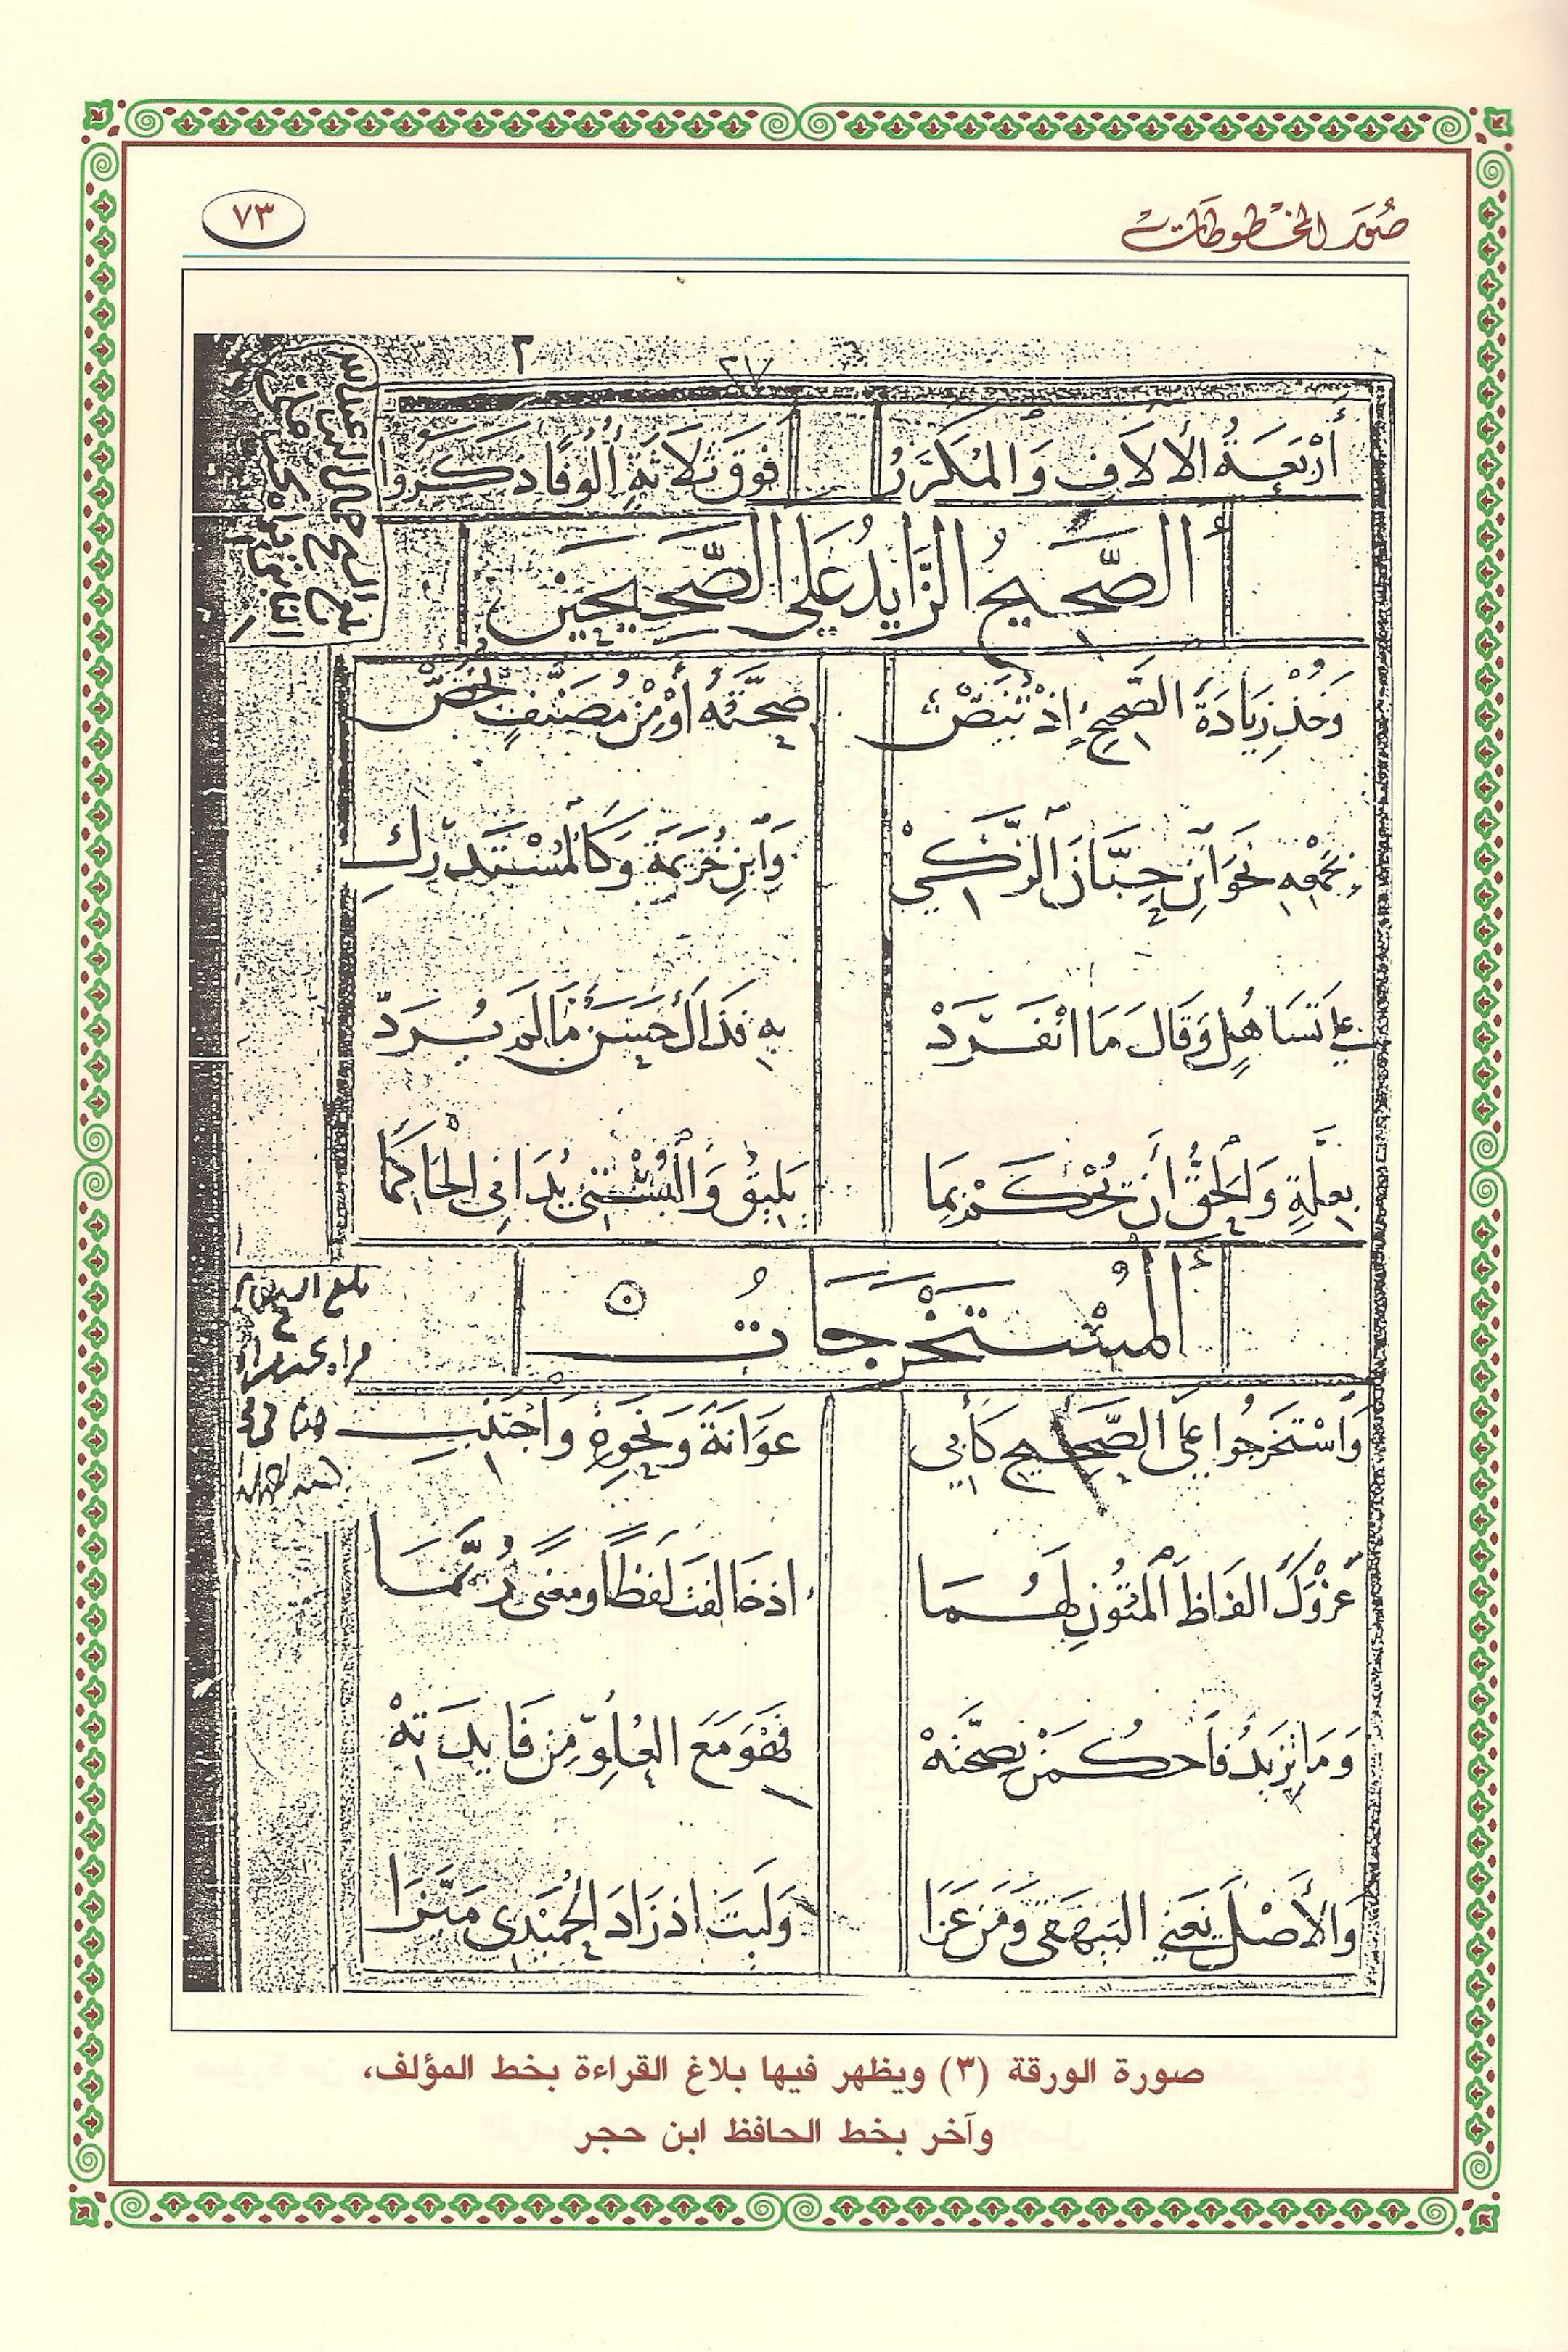 صُوَر المخطُوطَات
٧٣
أَرْبَعَةُ الْأَلَافِ وَالْمُكَرَّرُ فَوْقَ ثَلَاثَةٍ أُلُوفًا ذَكَرُوا
الصَّحِيحُ الزَّايدُ عَلَى الصَّحِيحَيْنِ
وَخُذْ زِيَادَةَ الصَّحِيحِ إِذْ تُنَصُّ صِحَّتُهُ أَوْ مِنْ مُصَنَّفٍ يُخَصُّ
بِجَمْعِهِ نَحْوَ ابْنِ حِبَّانَ الزَّكِي وَابْنِ خُزَيْمَةَ وَكَالْمُسْتَدْرَكِ
عَلَى تَسَاهُلٍ وَقَالَ مَا انْفَرَدْ بِهِ فَذَاكَ حَسَنٌ مَا لَمْ يُرَدّ
بِعِلَّةٍ وَالْحَقُّ أَنْ تُحْكَمْ بِمَا يَلِيقُ وَالْبُسْتِي يُدَانِي الْحَاكِمَا
الْمُسْتَخْرَجَاتُ
وَاسْتَخْرَجُوا عَلَى الصَّحِيحِ كَأَبِي عَوَانَةٍ وَنَحْوِهِ وَاجْتَنِبِ
عَزْوَكَ أَلْفَاظَ الْمُتُونِ لَهُمَا إِذْ خَالَفَتْ لَفْظًا وَمَعْنًى رُبَّمَا
وَمَا تَزِيدُ فَاحْكُمَنْ بِصِحَّتِهْ فَهْوَ مَعَ الْعُلُوِّ مِنْ فَايِدَتِهْ
وَالْأَصْلَ يَعْنِي الْبَيْهَقِي وَمَنْ عَزَا وَلَيْتَ إِذْ زَادَ الْحُمَيْدِي مَيَّزَا
صورة الورقة (٣) ويظهر فيها بلاغ القراءة بخط المؤلف،
وآخر بخط الحافظ ابن حجر